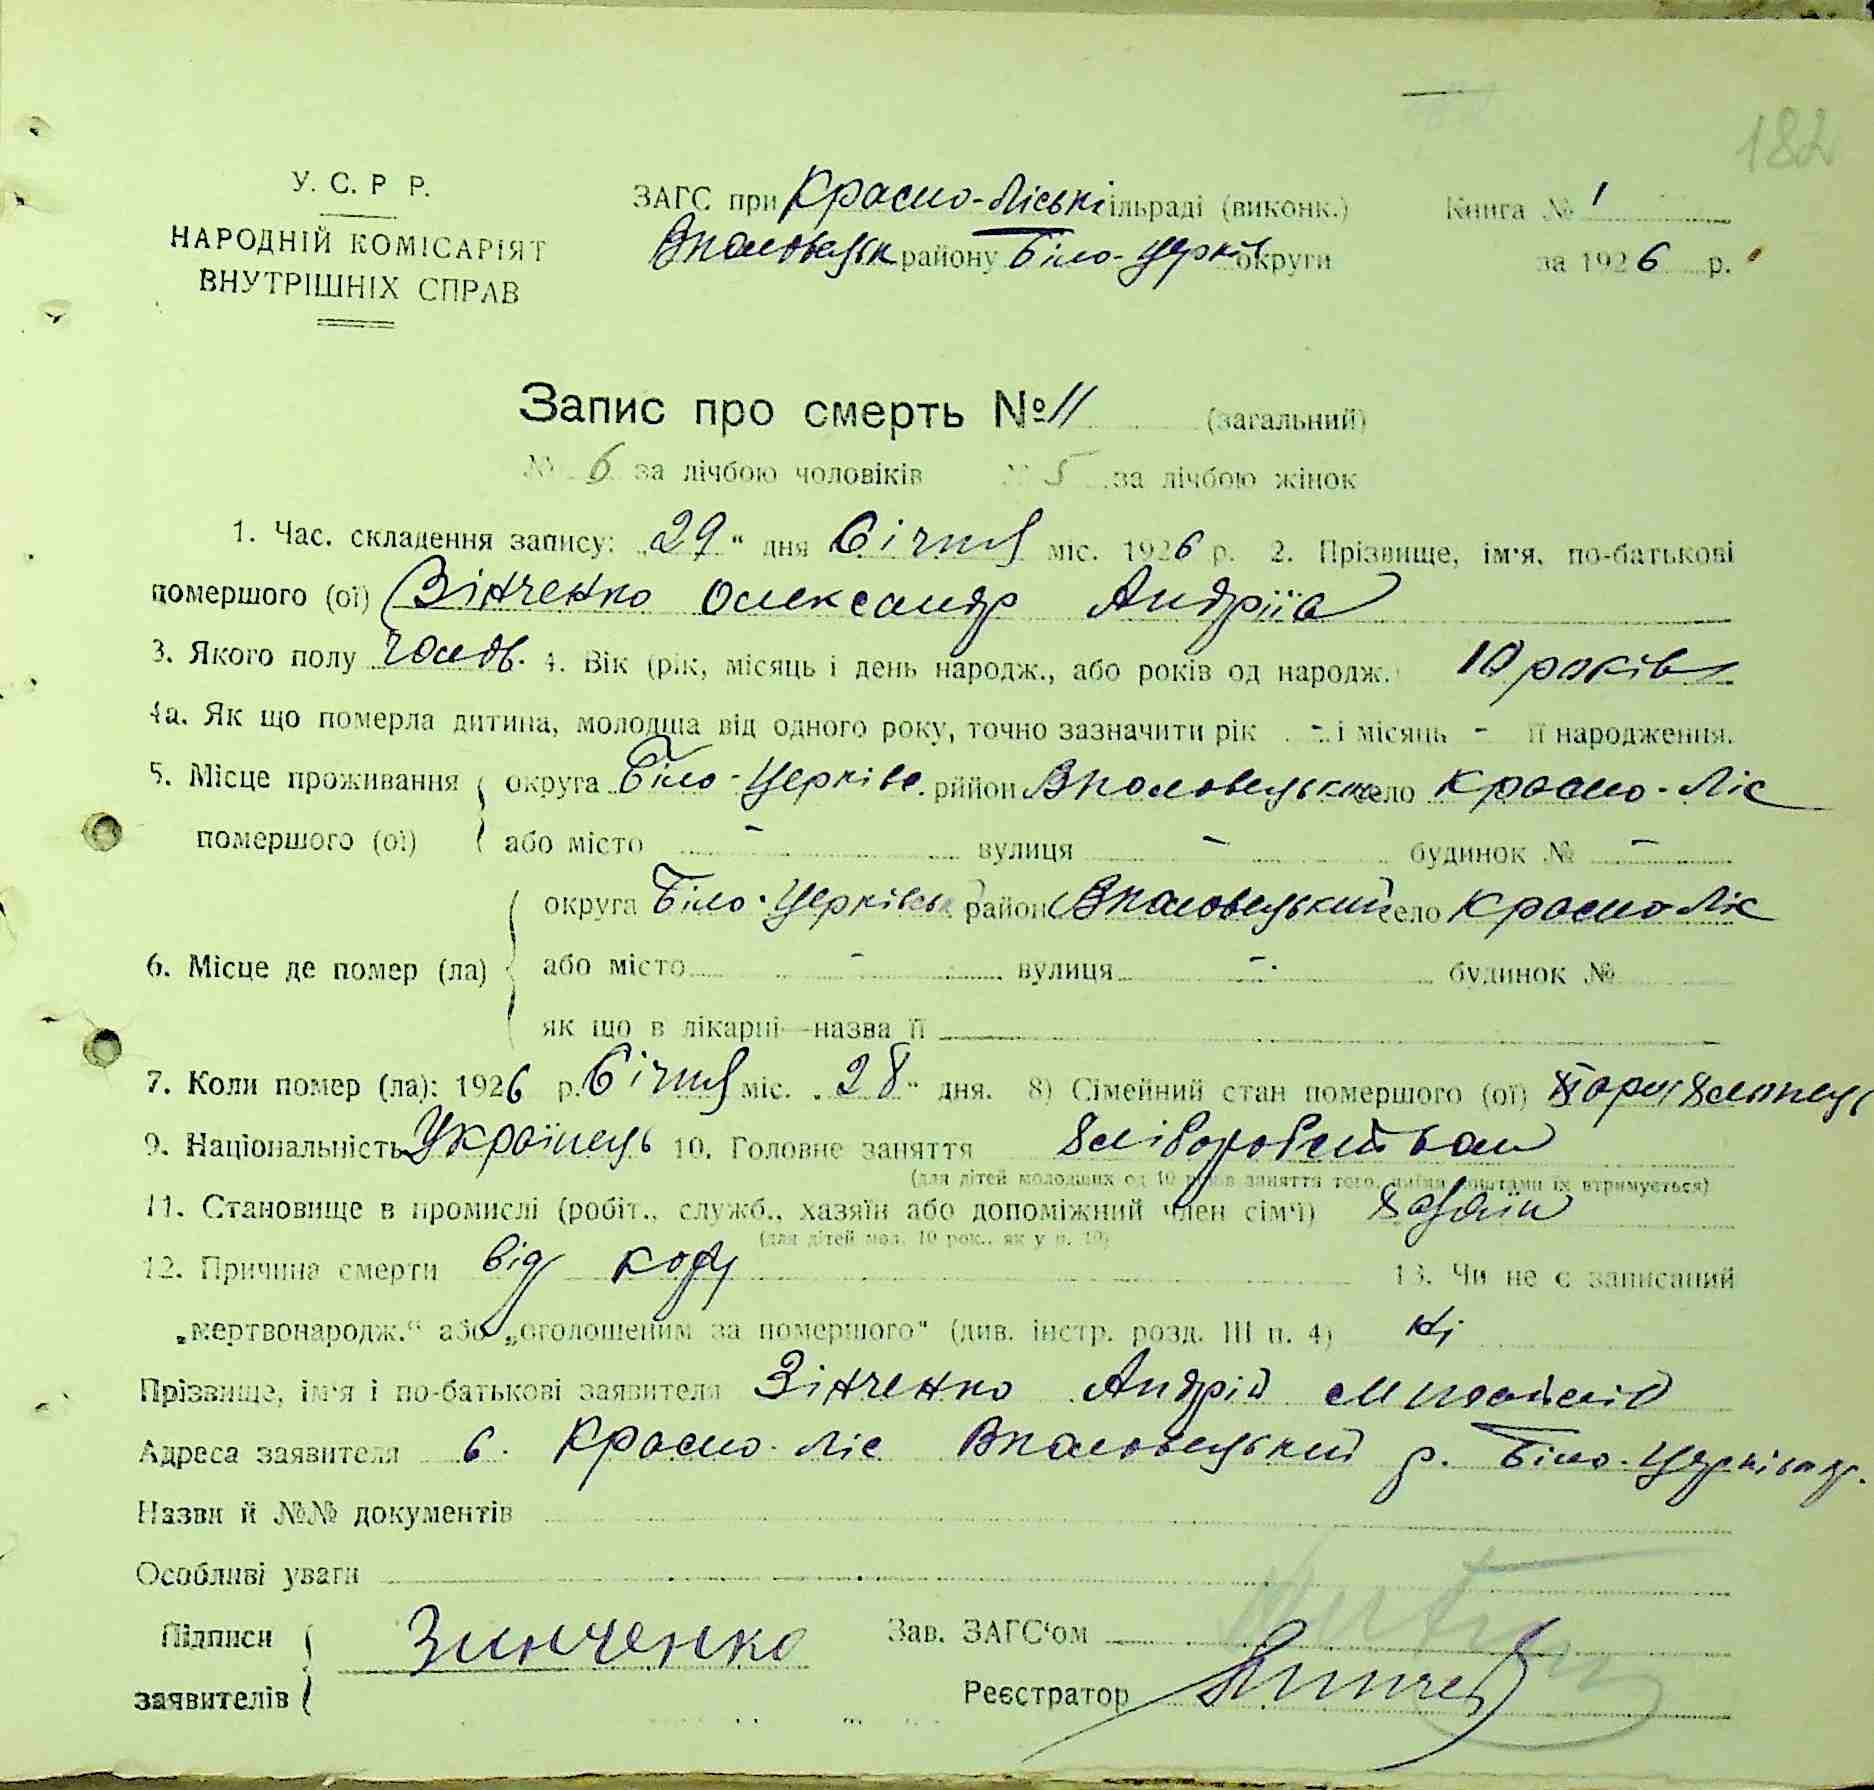 182
У. С. Р Р.
НАРОДНІЙ КОМІСАРІЯТ
ВНУТРІШНІХ СПРАВ
ЗАГС при Красно-Ліські ільраді (виконк.) Книга № 1
Вполовецьк району Біло-Церків округи за 1926 р.
Запис про смерть № 11 (загальний)
№ 6 за лічбою чоловіків № 5 за лічбою жінок
1. Час. складення запису: „29“ дня Січня міс. 1926 р. 2. Прізвище, ім'я, по-батькові
помершого (ої) Зінченко Олександр Андріїв
3. Якого полу чолов. 4. Вік (рік, місяць і день народж., або років од народж.) 10 років
4а. Як що померла дитина, молодша від одного року, точно зазначити рік - і місяць - її народження.
5. Місце проживання округа Біло-Церківс. район Вполовецький село Красно-Ліс
помершого (ої) або місто - вулиця - будинок № -
округа Біло-Церківськ район Вполовецький село Красно Ліс
6. Місце де помер (ла) або місто - вулиця - будинок №
як що в лікарні—назва її
7. Коли помер (ла): 1926 р. Січня міс. „28“ дня. 8) Сімейний стан помершого (ої)
9. Національність Українець 10. Головне заняття хліборобством
(для дітей молодших од 10 років заняття того, чиїми коштами їх втримується)
11. Становище в промислі (робіт., служб., хазяїн або допоміжний член сім'ї) хазяїн
(для дітей мол. 10 рок., як у п. 10)
12. Причина смерти від кору 13. Чи не є записаний
„мертвонародж.“ або „оголошеним за помершого“ (див. інстр. розд. III п. 4) Ні
Прізвище, ім'я і по-батькові заявителя Зінченко Андрій
Адреса заявителя с. Красно-Ліс Вполовецький р. Біло-Церків
Назви й №№ документів
Особливі уваги
Підписи Зинченко Зав. ЗАГС‘ом
заявителів Реєстратор